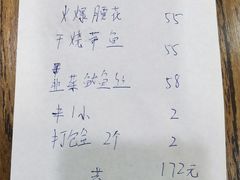 火爆腰花 55
干烧笋鱼 55
韭菜鱿鱼丝 58
丰1小 2
打包盒 2个 2
172元